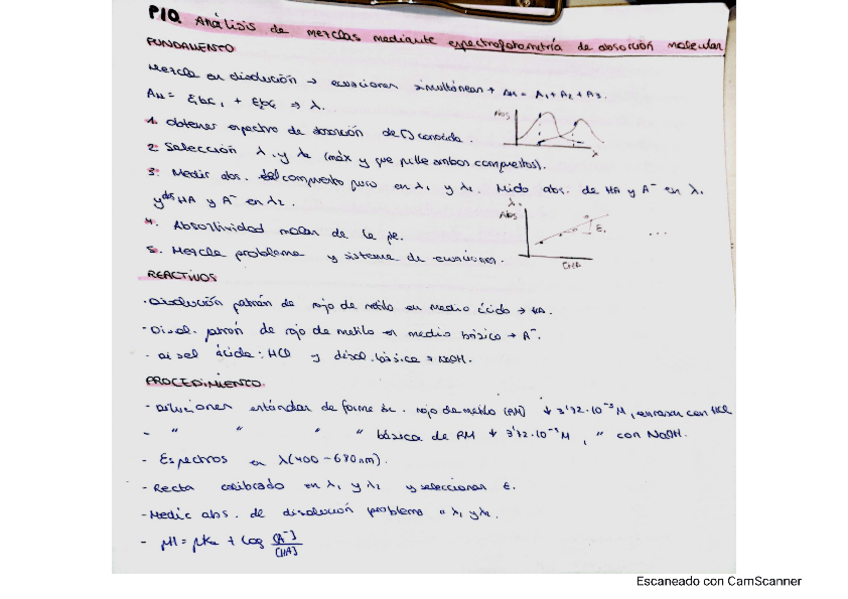 P10. Análisis de mezclas mediante espectrofotometría de absorción molecular
FUNDAMENTO
Mezcla en disolución → ecuaciones simultáneas → AM = A1 + A2 + A3.
AM = ε1bC1 + ε2bC2 ⇒ λ.
1. Obtener espectro de absorción de [] conocida.
Abs
λ
2. Selección λ1 y λ2 (máx y que pille ambos compuestos).
3. Medir abs. del compuesto puro en λ1 y λ2. Mido abs. de HA y A⁻ en λ1
y abs HA y A⁻ en λ2.
λ1
Abs
ε1
...
4. Absortividad molar de la pte.
5. Mezcla problema y sistema de ecuaciones.
[HA]
REACTIVOS
- Disolución patrón de rojo de metilo en medio ácido → HA.
- Disol. patrón de rojo de metilo en medio básico → A⁻.
- Disol ácida: HCl y disol. básica → NaOH.
PROCEDIMIENTO
- Diluciones estándar de forma ác. rojo de metilo (RM) ↓ 3'72·10⁻⁵ M, enrasar con HCl
- " " " " básica de RM ↓ 3'72·10⁻⁵ M, " con NaOH.
- Espectros en λ (400 - 680 nm).
- Recta calibrado en λ1 y λ2 y seleccionar ε.
- Medir abs. de disolución problema a λ1 y λ2.
- pH = pKa + log [A⁻]/[HA]
Escaneado con CamScanner